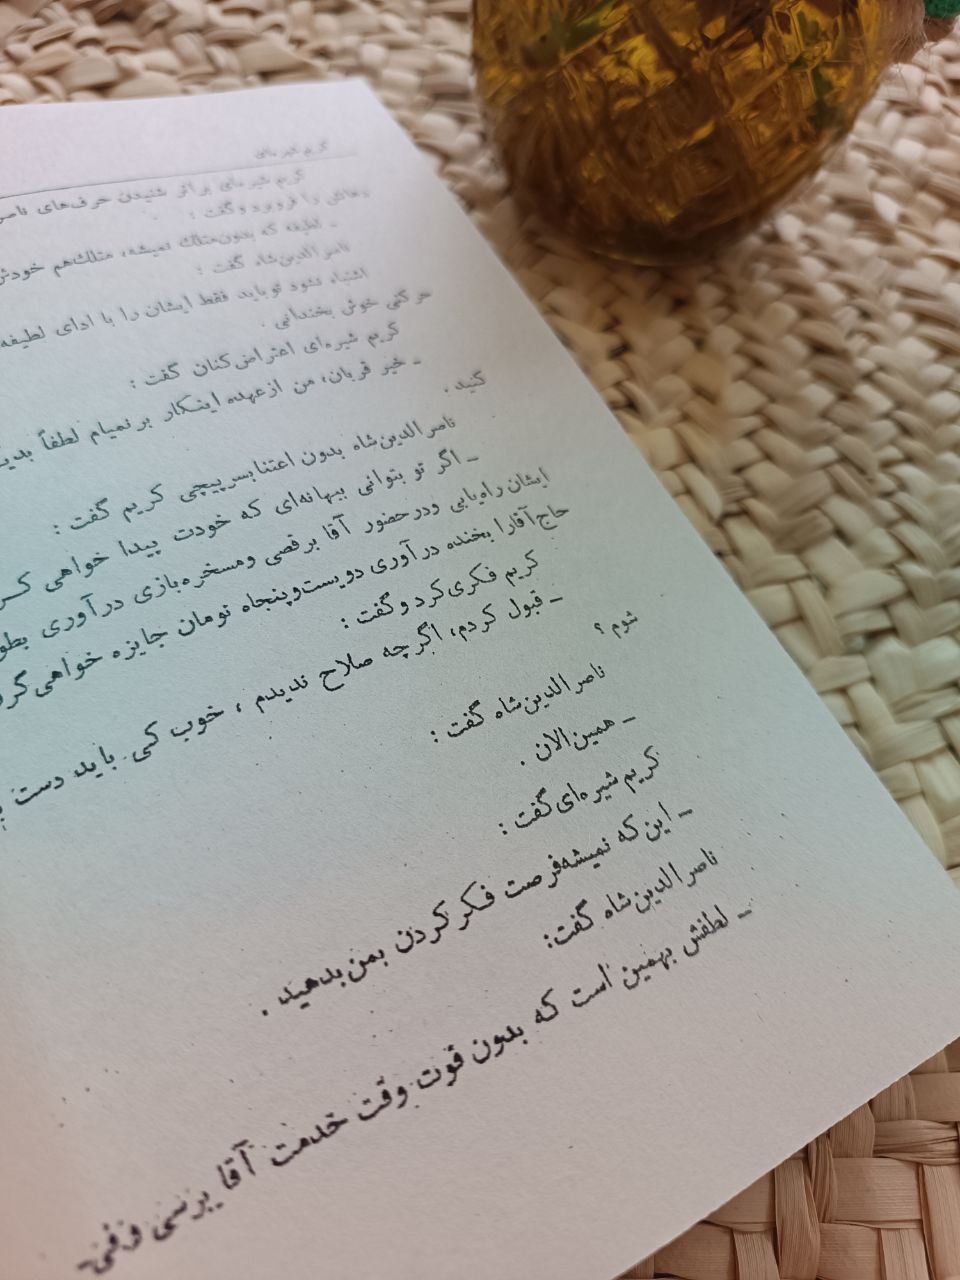 کریم شیره‌ای
کریم شیره‌ای بر اثر شنیدن حرف‌های ناصر
را فرو برد و گفت :
ـ لطیفه که بدون متلک نمیشه، متلک‌هم خودش
ناصرالدین‌شاه گفت :
اشتباه نشود تو باید فقط ایشان را با ادای لطیفه
حرکتی خوش بخندانی .
کریم شیره‌ای اعتراض‌کنان گفت :
ـ خیر قربان، من ازعهده اینکار برنمیام لطفاً
کنید .
ناصرالدین‌شاه بدون اعتنا بسرپیچی کریم گفت :
ـ اگر تو بتوانی ببهانه‌ای که خودت پیدا خواهی
ایشان راه‌یابی ودرحضور آقا برقصی ومسخره‌بازی درآوری
حاج‌آقارا بخنده درآوری دویست‌وپنجاه تومان جایزه خواهی
کریم فکری‌کرد و گفت :
ـ قبول کردم، اگرچه صلاح ندیدم ، خوب کی باید دست
شوم ؟
ناصرالدین‌شاه گفت :
ـ همین‌الان .
کریم شیره‌ای‌گفت :
ـ این که نمیشه‌فرصت فکرکردن بمن‌بدهید .
ناصرالدین‌شاه گفت:
ـ لطفش بهمین است که بدون فوت وقت خدمت آقا برسی و